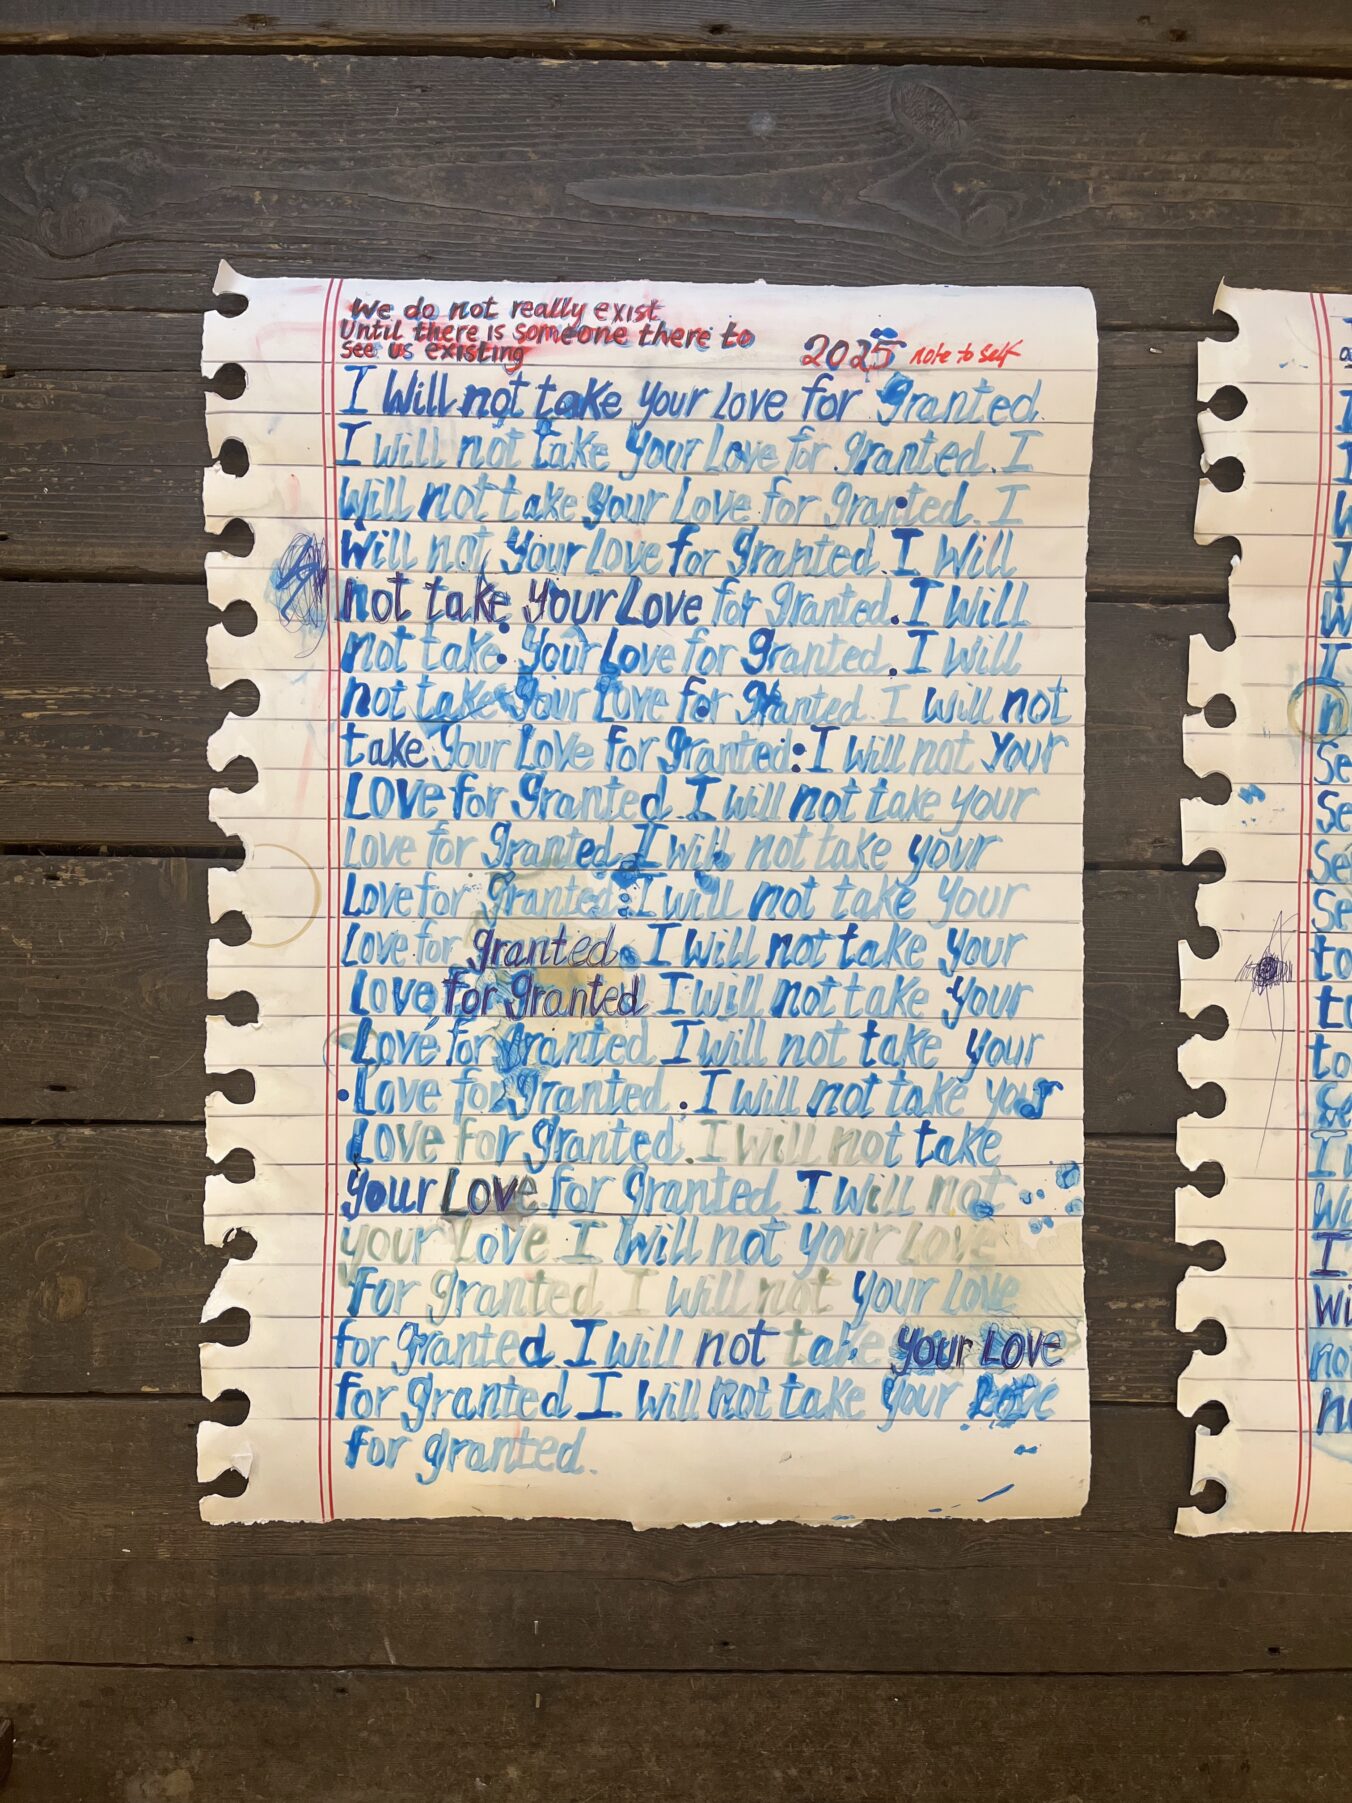 We do not really exist
Until there is someone there to
See us existing
2025 note to self
I Will not take your Love for granted.
I Will not take your Love for granted. I
Will not take your Love for granted. I
Will not your Love for granted. I Will
not take your Love for granted. I Will
not take. your Love for granted. I Will
not take your Love for granted. I Will not
take your Love for granted. I Will not your
Love for granted. I Will not take your
Love for granted. I Will not take your
Love for granted. I Will not take your
Love for granted. I Will not take your
Love, for granted I Will not take your
Love for granted. I Will not take your
Love for granted. I Will not take your
Love for granted. I Will not take
your Love for granted. I Will not
your Love I Will not your Love
For granted. I Will not your Love
for granted. I Will not take your Love
for granted. I Will not take your Love
for granted.
I
I
W
I
W
I
n
Se
Se
Se
Se
to
to
to
Se
I
Wi
I
Wi
no
n